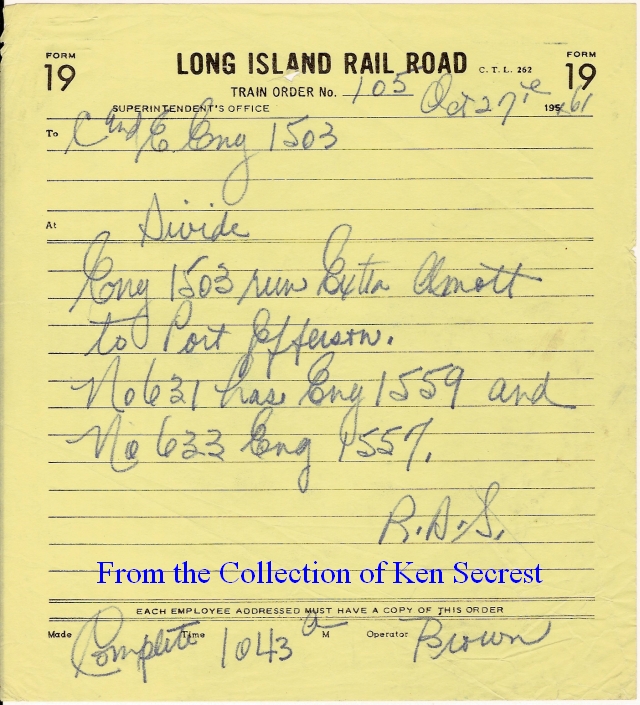 FORM 19 LONG ISLAND RAIL ROAD C. T. L. 262 FORM 19
TRAIN ORDER No. 105 Oct 27th 1961
SUPERINTENDENT'S OFFICE
To C and E Eng 1503
At Divide
Eng 1503 run Extra Amott
to Port Jefferson.
No 631 has Eng 1559 and
No 633 Eng 1557.
R.D.S.
From the Collection of Ken Secrest
EACH EMPLOYEE ADDRESSED MUST HAVE A COPY OF THIS ORDER
Made Complete Time 1043 a M Operator Brown